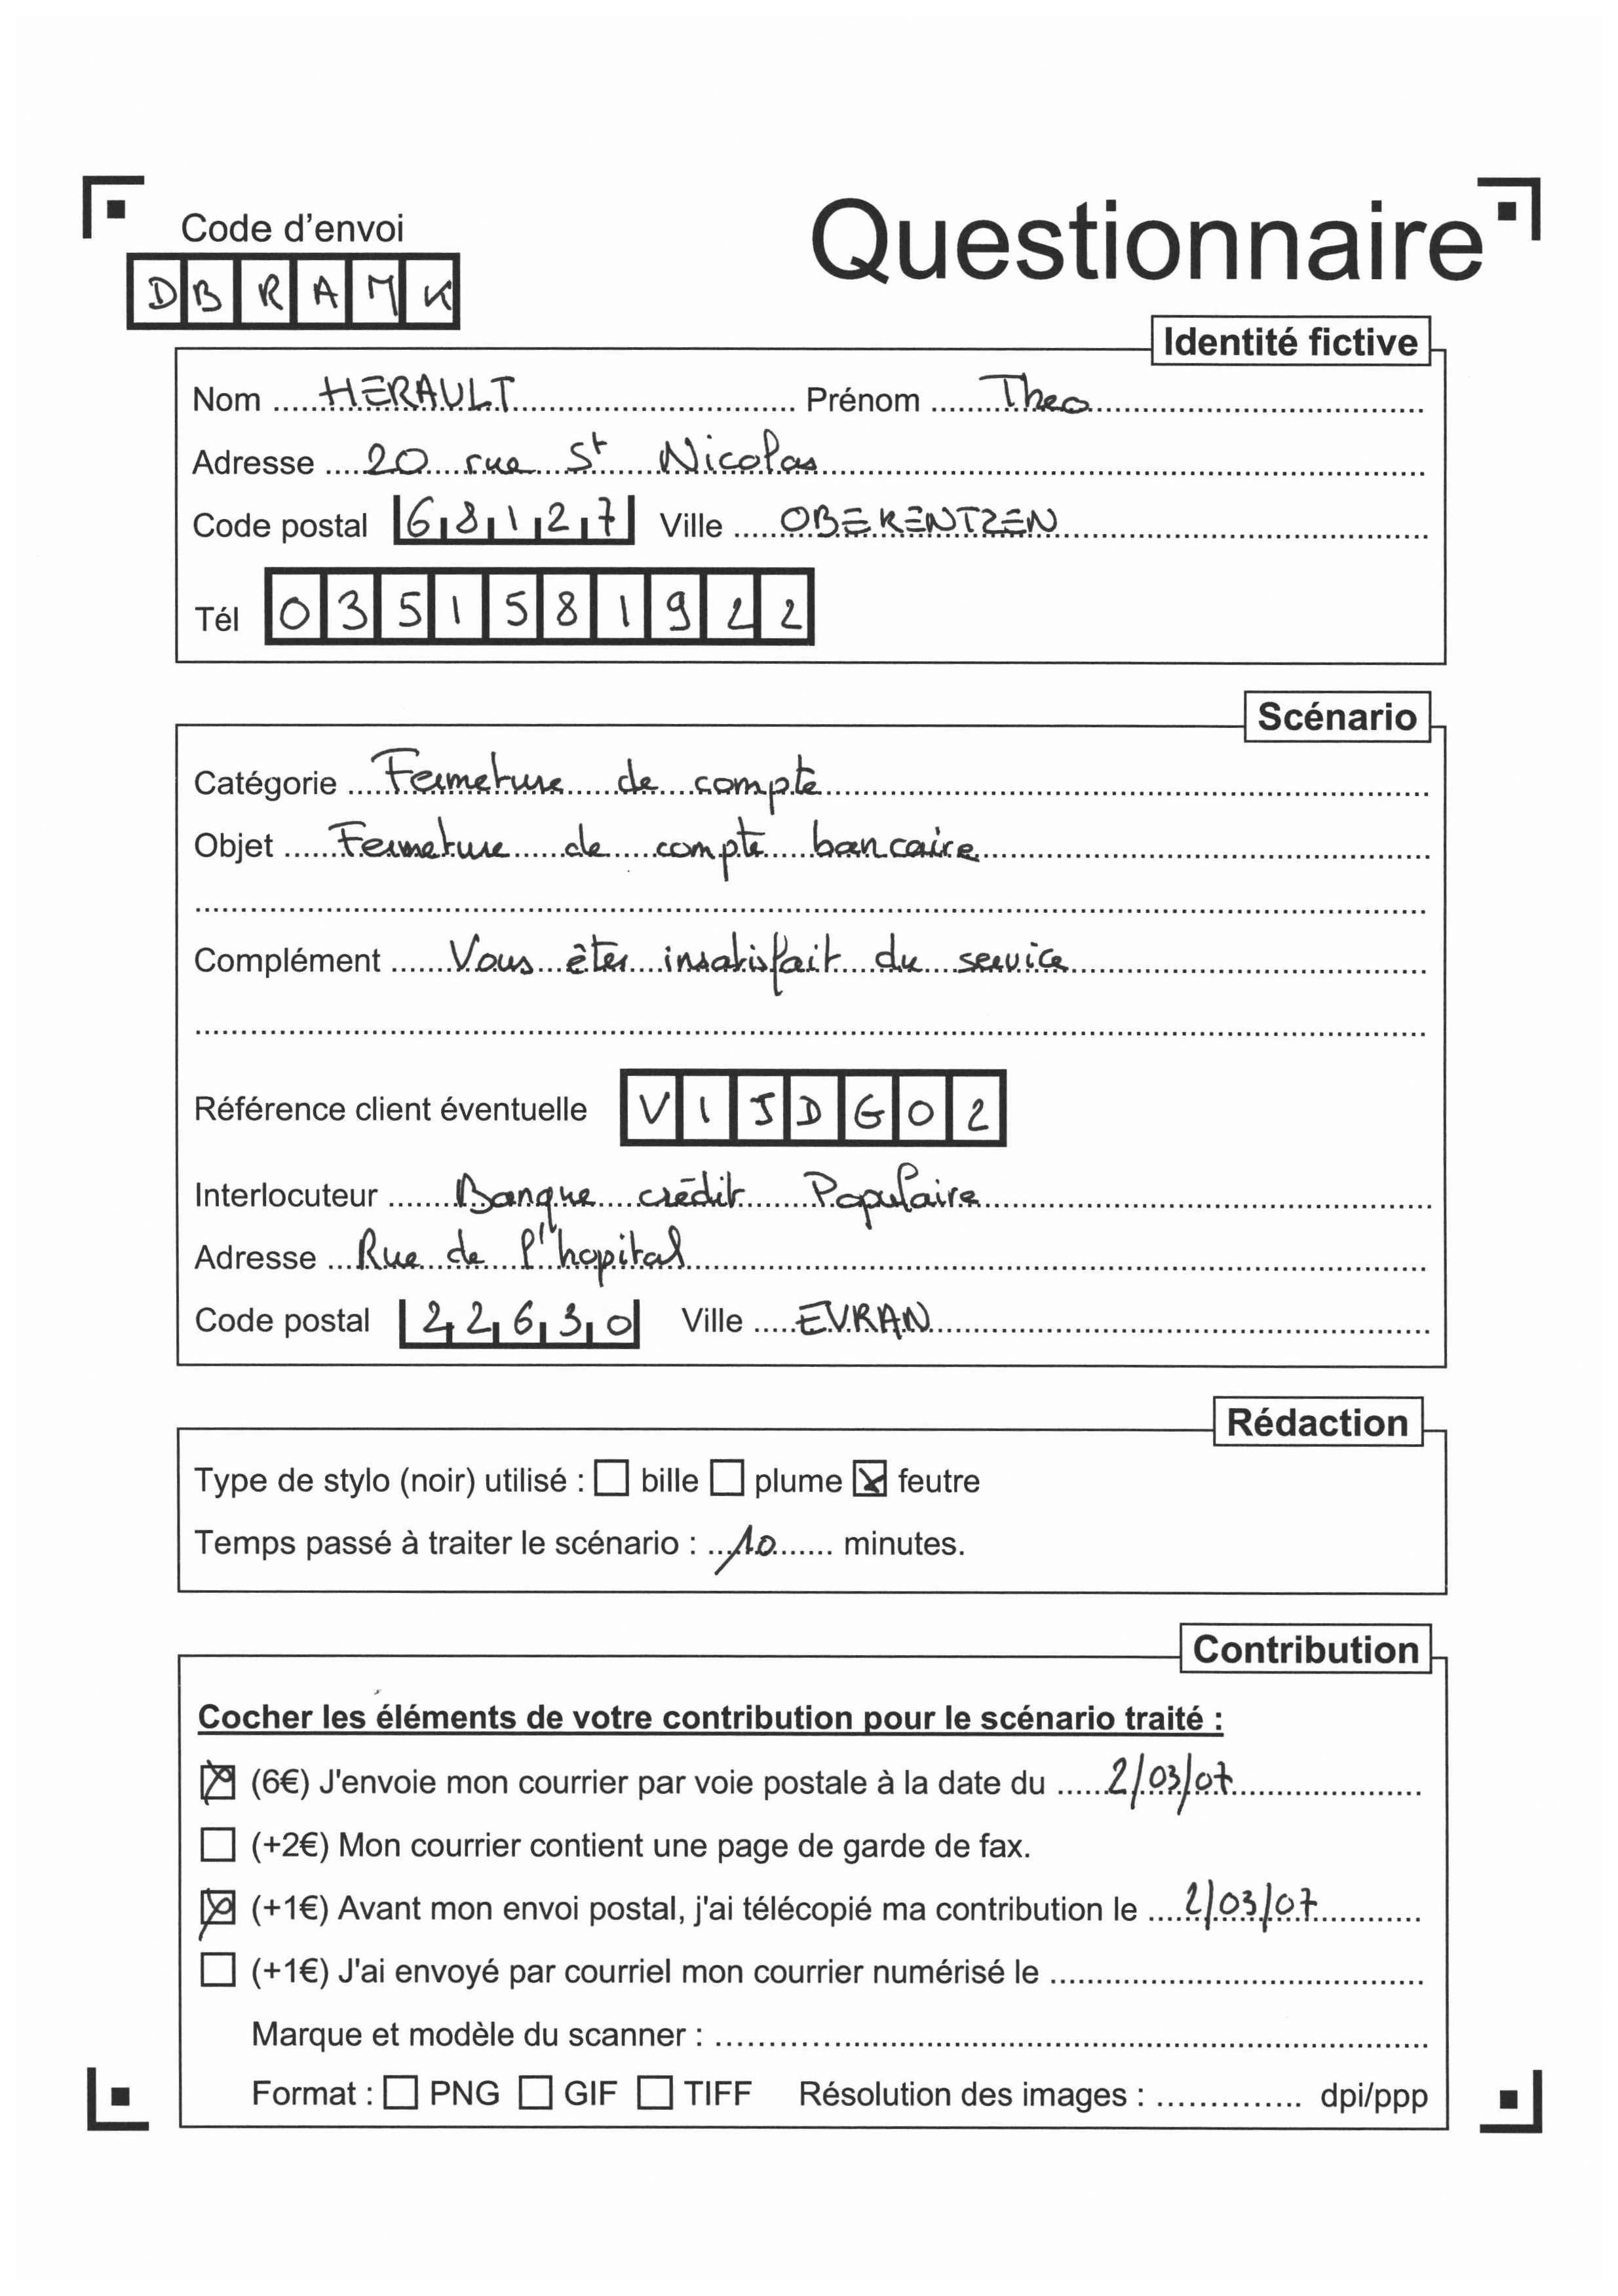 Code d'envoi
Questionnaire
DBRAMK
Identité fictive
Nom HERAULT Prénom Theo
Adresse 20 rue St Nicolas
Code postal 68127 Ville OBERENTZEN
Tél 0351581922
Scénario
Catégorie Fermeture de compte
Objet Fermeture de compte bancaire
Complément Vous êtes insatisfait du service
Référence client éventuelle VIJDG02
Interlocuteur Banque crédit Populaire
Adresse Rue de l'hopital
Code postal 22630 Ville EVRAN
Rédaction
Type de stylo (noir) utilisé : bille plume feutre
Temps passé à traiter le scénario : 10 minutes.
Contribution
Cocher les éléments de votre contribution pour le scénario traité :
(6€) J'envoie mon courrier par voie postale à la date du 2/03/07
(+2€) Mon courrier contient une page de garde de fax.
(+1€) Avant mon envoi postal, j'ai télécopié ma contribution le 2/03/07
(+1€) J'ai envoyé par courriel mon courrier numérisé le
Marque et modèle du scanner :
Format : PNG GIF TIFF Résolution des images : dpi/ppp